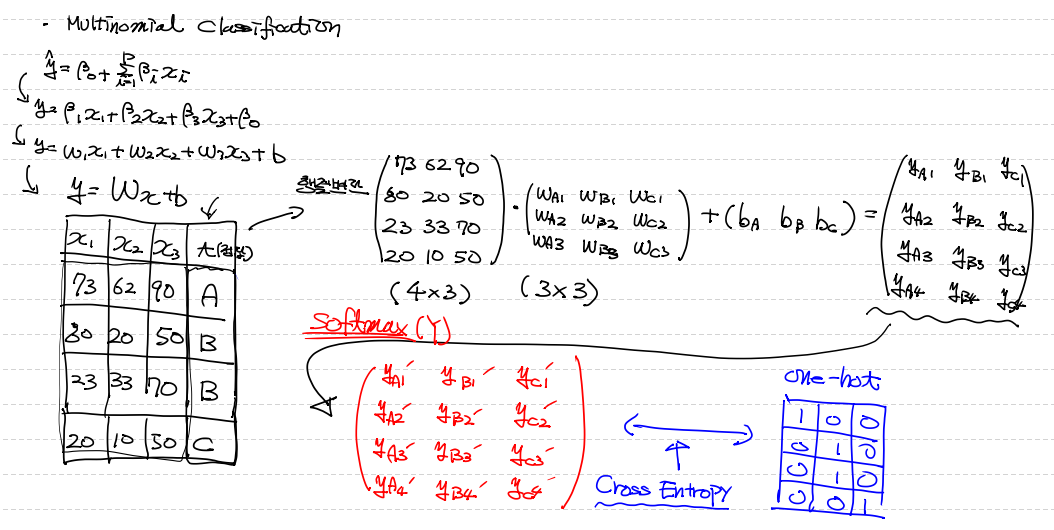 · Multinomial Classification
ŷ = β₀ + Σᵢ₌₁ᵖ βᵢxᵢ
y = β₁x₁ + β₂x₂ + β₃x₃ + β₀
y = w₁x₁ + w₂x₂ + w₃x₃ + b
y = Wx + b
x₁ x₂ x₃ t(정답)
73 62 90 A
80 20 50 B
23 33 70 B
20 10 50 C
73 62 90
80 20 50
23 33 70
20 10 50
·
wA1 wB1 wC1
wA2 wB2 wC2
wA3 wB3 wC3
+ (bA bB bC) =
yA1 yB1 yC1
yA2 yB2 yC2
yA3 yB3 yC3
yA4 yB4 yC4
(4×3) (3×3)
Softmax(Y)
yA1′ yB1′ yC1′
yA2′ yB2′ yC2′
yA3′ yB3′ yC3′
yA4′ yB4′ yC4′
Cross Entropy
one-hot
1 0 0
0 1 0
0 1 0
0 0 1